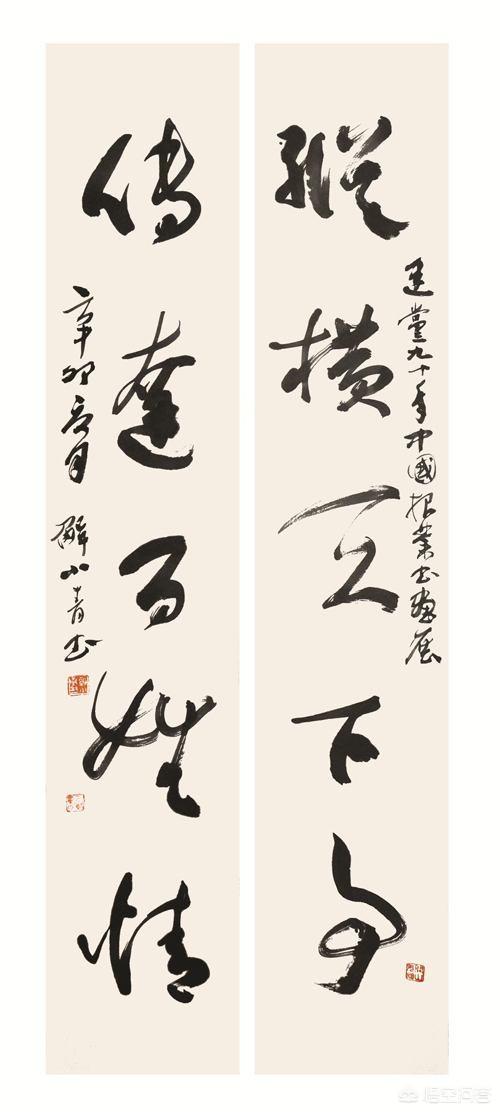 縱橫天下事
建黨九十年中國報業書畫展
傳達百姓情
辛卯夏月 解小青書
悟空问答